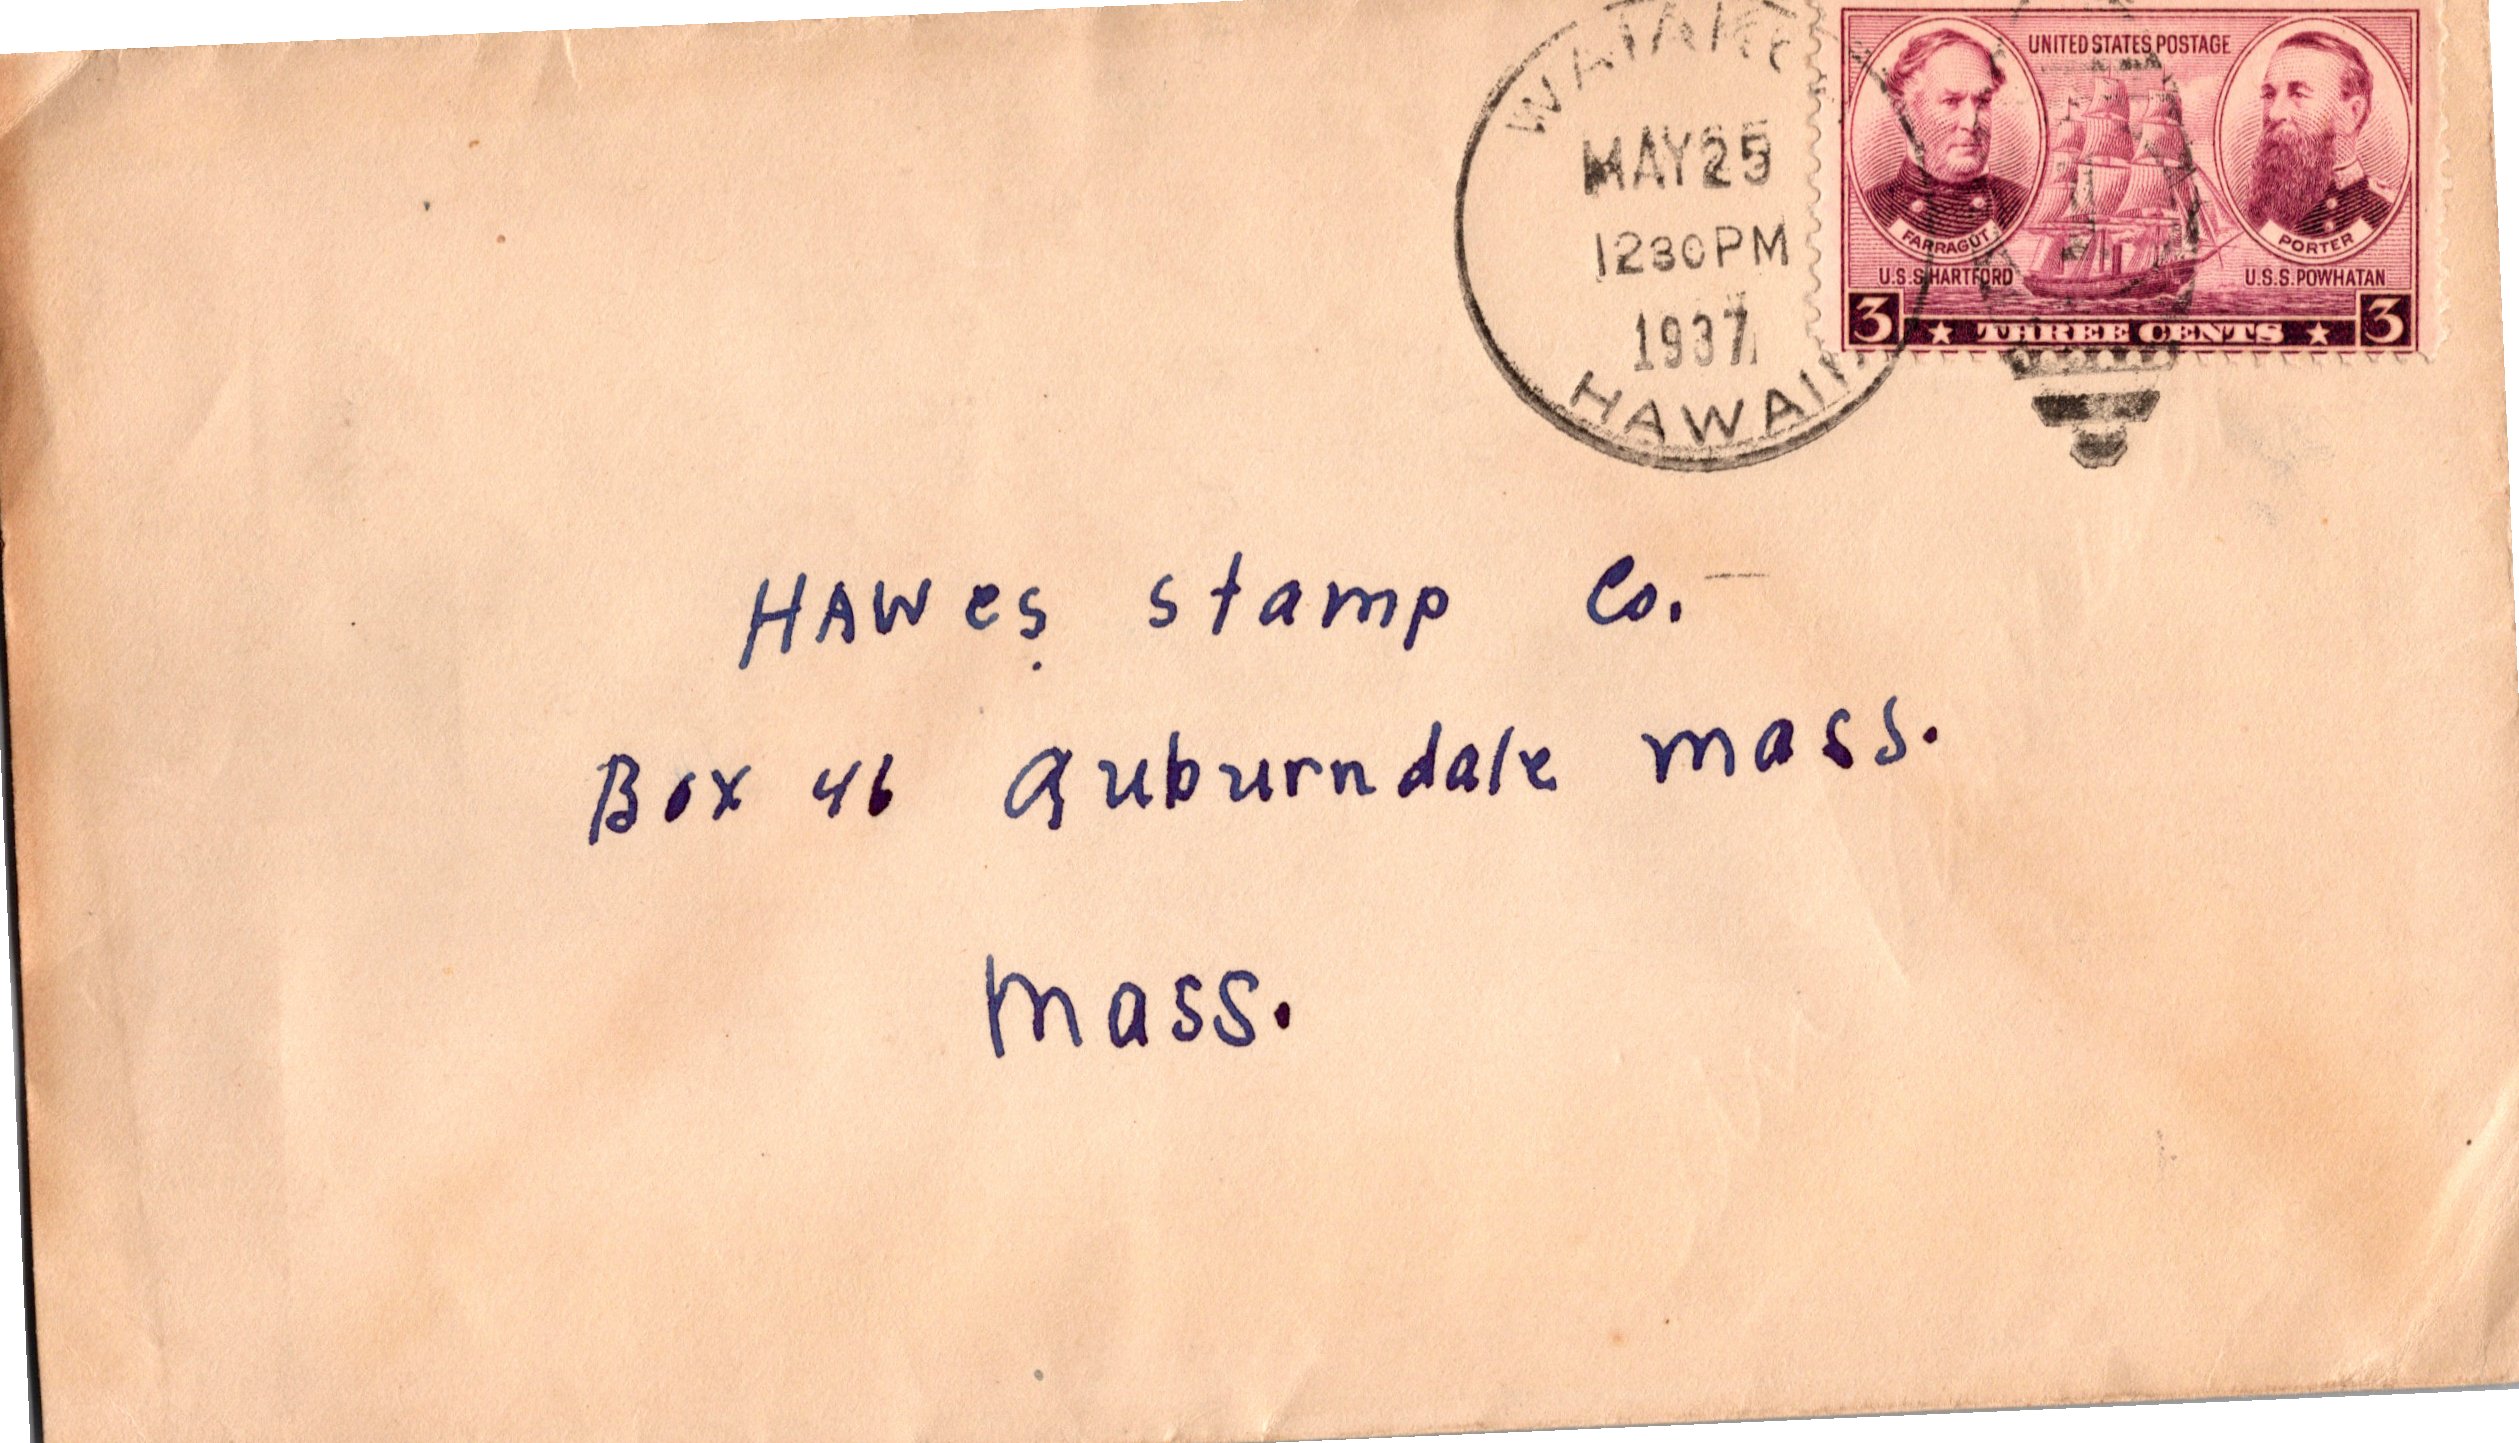 MAY 25
1230 PM
1937
HAWAII.
UNITED STATES POSTAGE
FARRAGUT
PORTER
U.S.S. HARTFORD
U.S.S. POWHATAN
3 THREE CENTS 3
HAWes stamp Co.
Box 46 Auburndale mass.
mass.